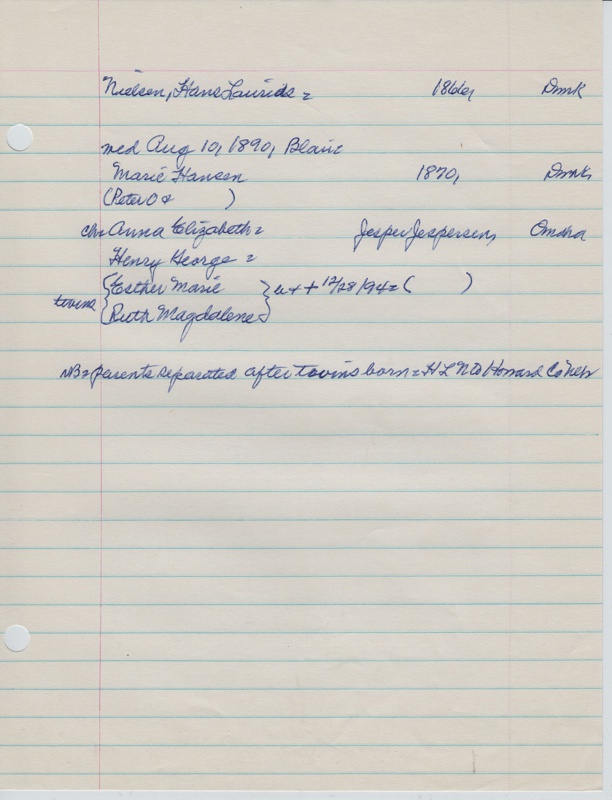 Nielsen, Hans Laurids = 1866, Dmk
med Aug 10, 1890, Blair
Marie Hansen 1870, Dmk,
(Peter O & )
ch = Anna Elizabeth = Jesper Jespersen, Omaha
Henry George =
Esther Marie
twins } + 12/28/94 = ( )
Ruth Magdalene
NB = parents separated after twins born = H L N to Howard Co Neb